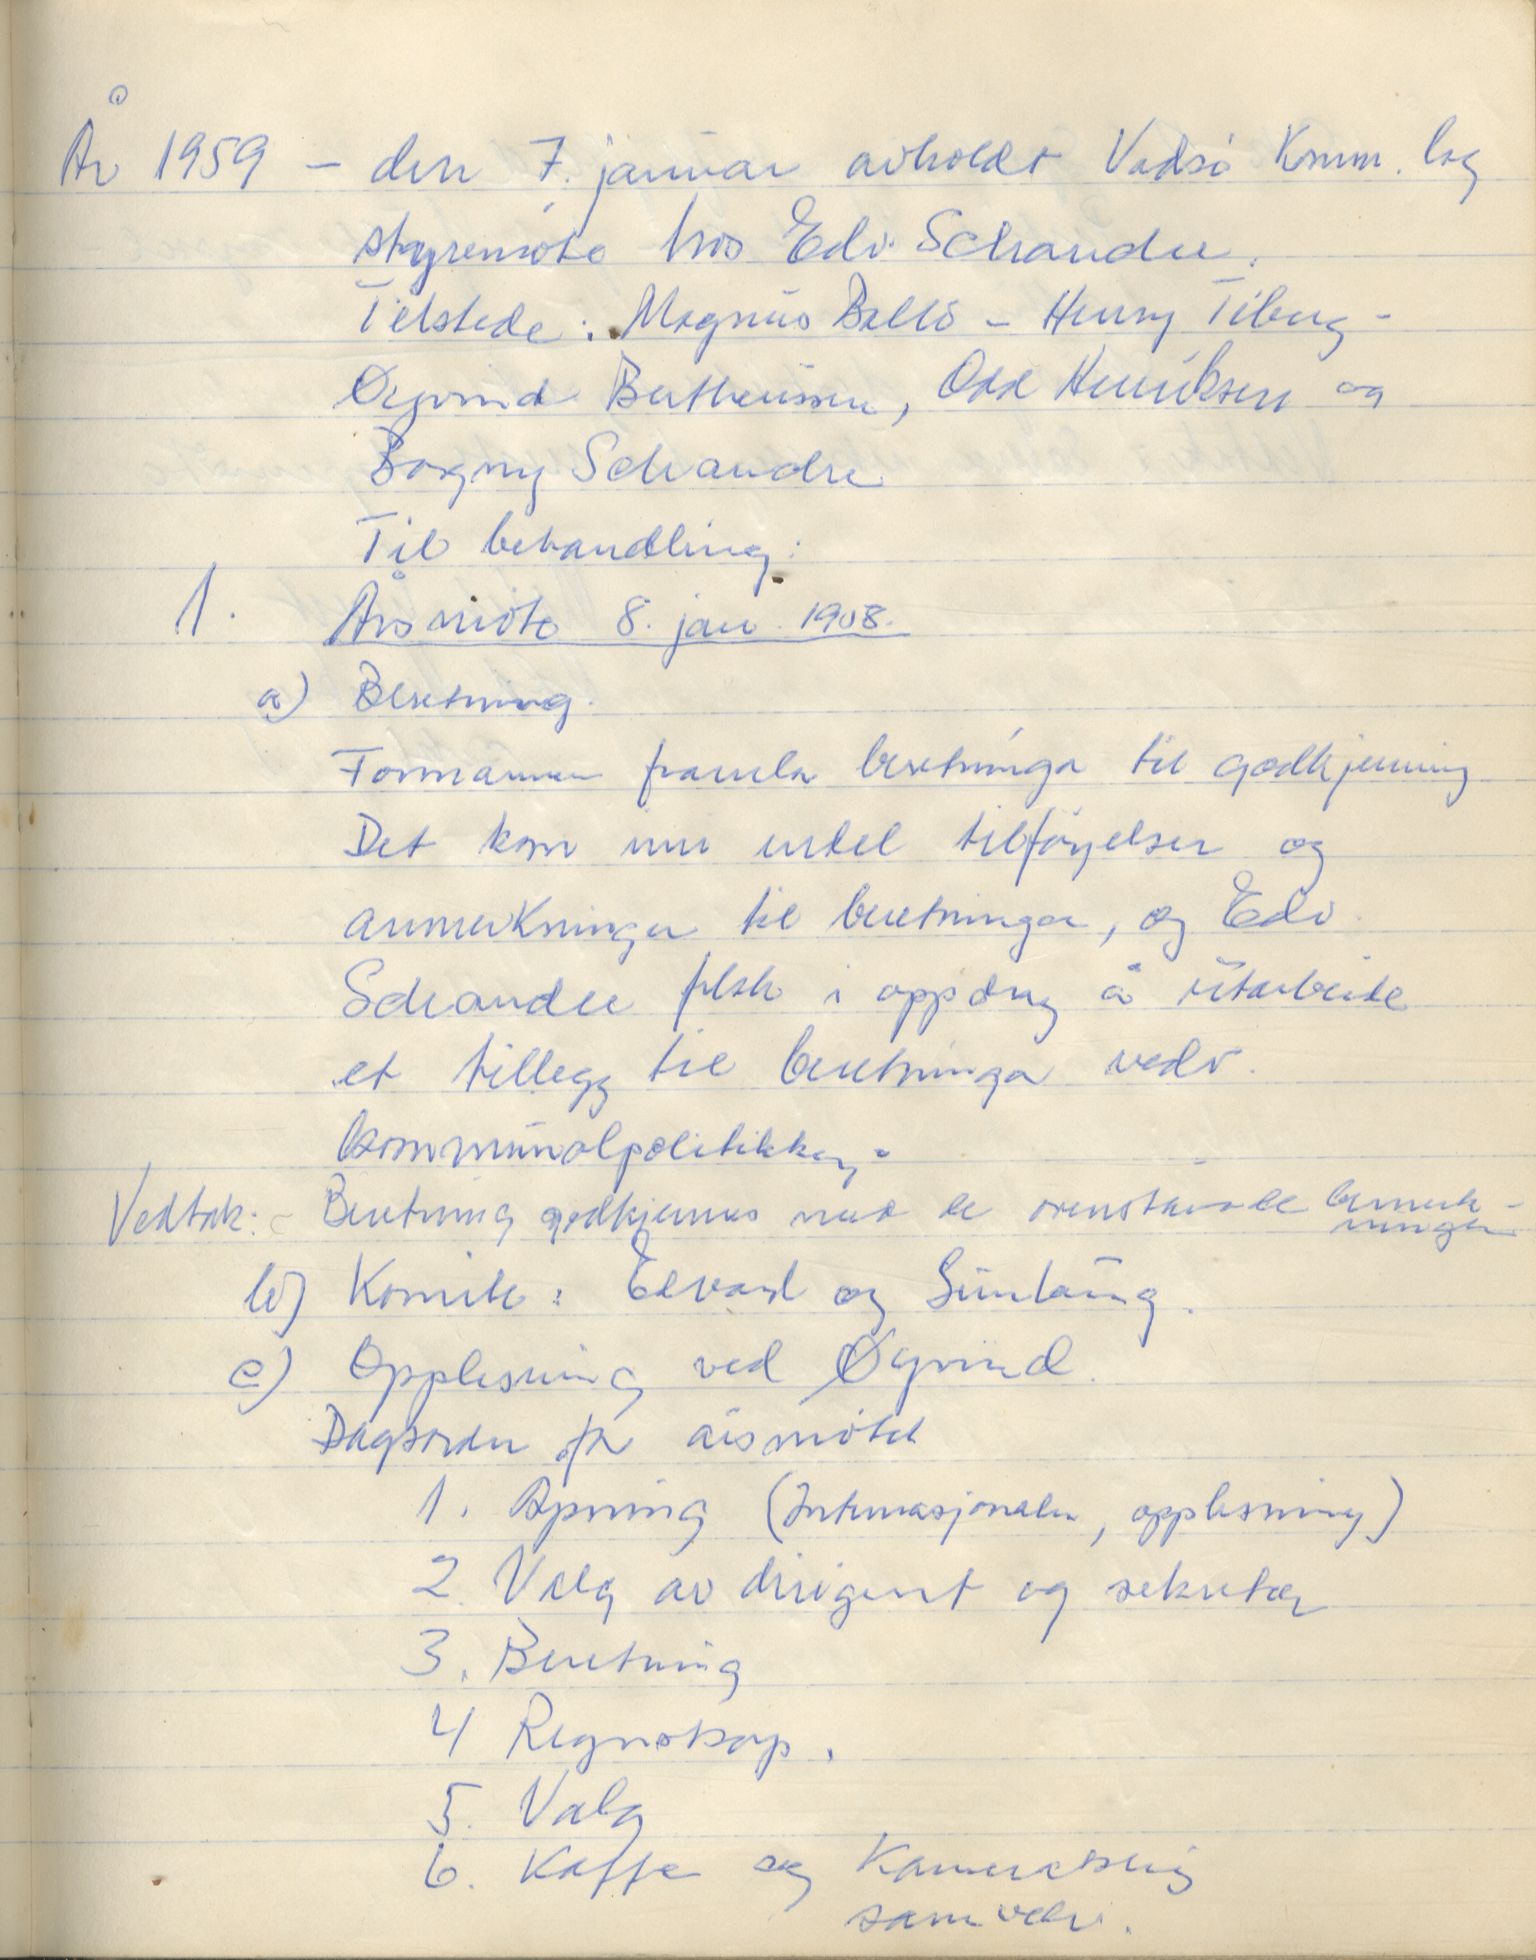 År 1959 – den 7. januar avholdt Vadsö Komm. lag
styremöte hos Edv. Schander.
Tilstede: Magnus Ballo – Henry Tiberg –
Øyvind Bertheussen, Odd Henriksen og
Borgny Schandre
Til behandling:
1. Årsmöte 8. jan. 1958.
a) Beretning.
Formannen framla beretninga til godkjenning
Det kom inn endel tilföyelser og
anmerkninger til beretninga, og Edv.
Schander fikk i oppdrag å utarbeide
et tillegg til beretninga vedr.
kommunalpolitikken.
Vedtak: Beretning godkjennes med de ovenstående bemerk-
ninger
b) Komite: Edvard og
c) Opplesning ved Øyvind.
Dagsorden for årsmötet
1. Åpning (Internasjonalen, opplesning)
2. Valg av dirigent og sekretær
3. Beretning
4 Regnskap.
5. Valg
6. Kaffe og Kameratslig
samvær.